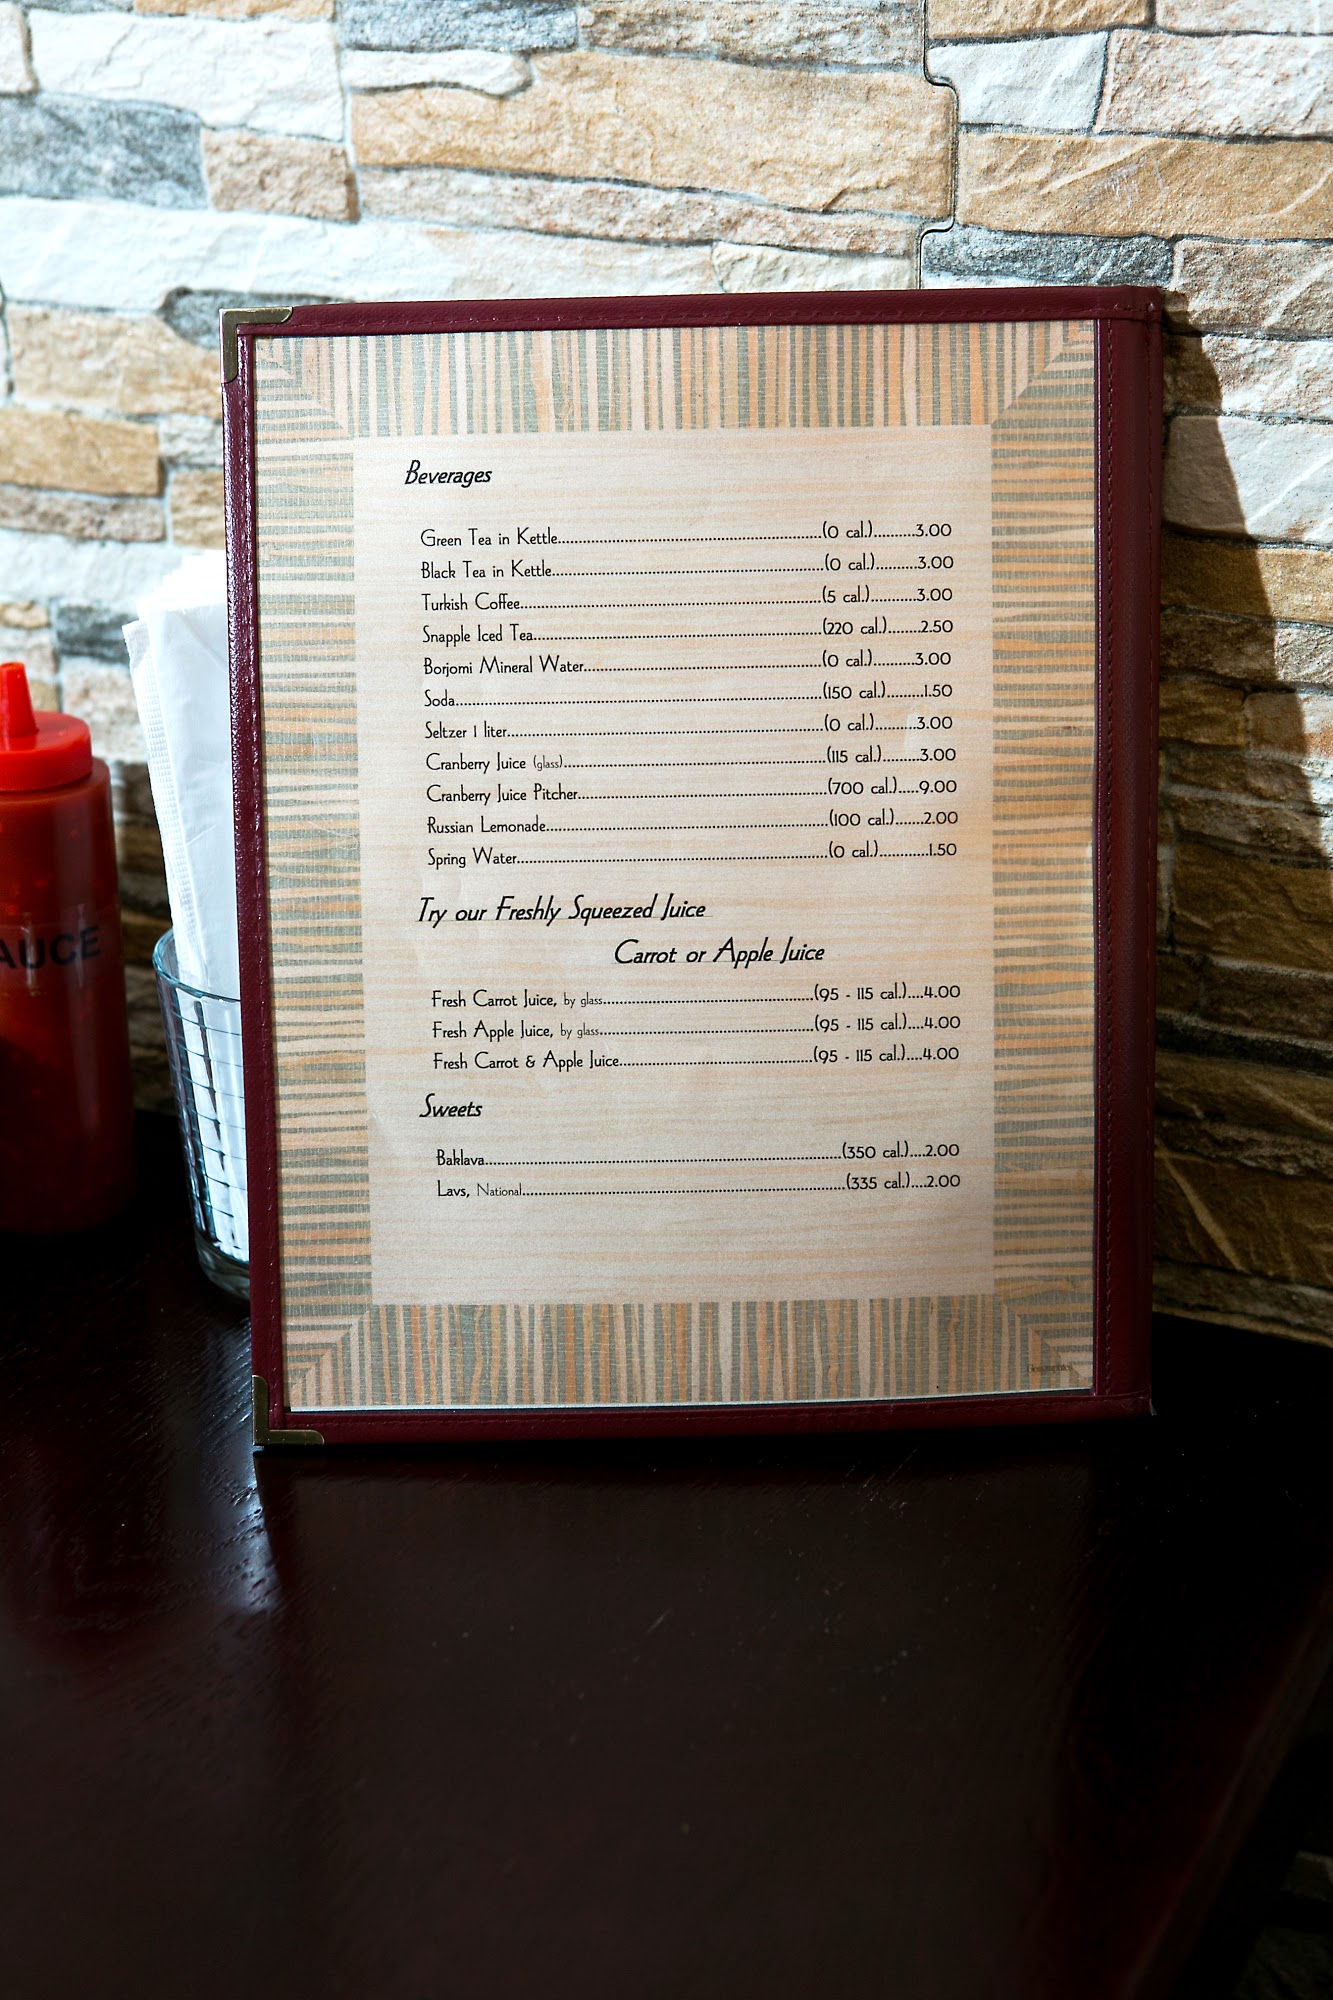 Beverages
Green Tea in Kettle..........(0 cal.)..........3.00
Black Tea in Kettle..........(0 cal.)..........3.00
Turkish Coffee..........(5 cal.)..........3.00
Snapple Iced Tea..........(220 cal.)........2.50
Borjomi Mineral Water..........(0 cal.)..........3.00
Soda..........(150 cal.).........1.50
Seltzer 1 liter..........(0 cal.)..........3.00
Cranberry Juice (glass)..........(115 cal.).........3.00
Cranberry Juice Pitcher..........(700 cal.).....9.00
Russian Lemonade..........(100 cal.).......2.00
Spring Water..........(0 cal.)............1.50
Try our Freshly Squeezed Juice
Carrot or Apple Juice
Fresh Carrot Juice, by glass..........(95 - 115 cal.)....4.00
Fresh Apple Juice, by glass..........(95 - 115 cal.)....4.00
Fresh Carrot & Apple Juice..........(95 - 115 cal.)....4.00
Sweets
Baklava..........(350 cal.)....2.00
Lavs, National..........(335 cal.)....2.00
AUCE